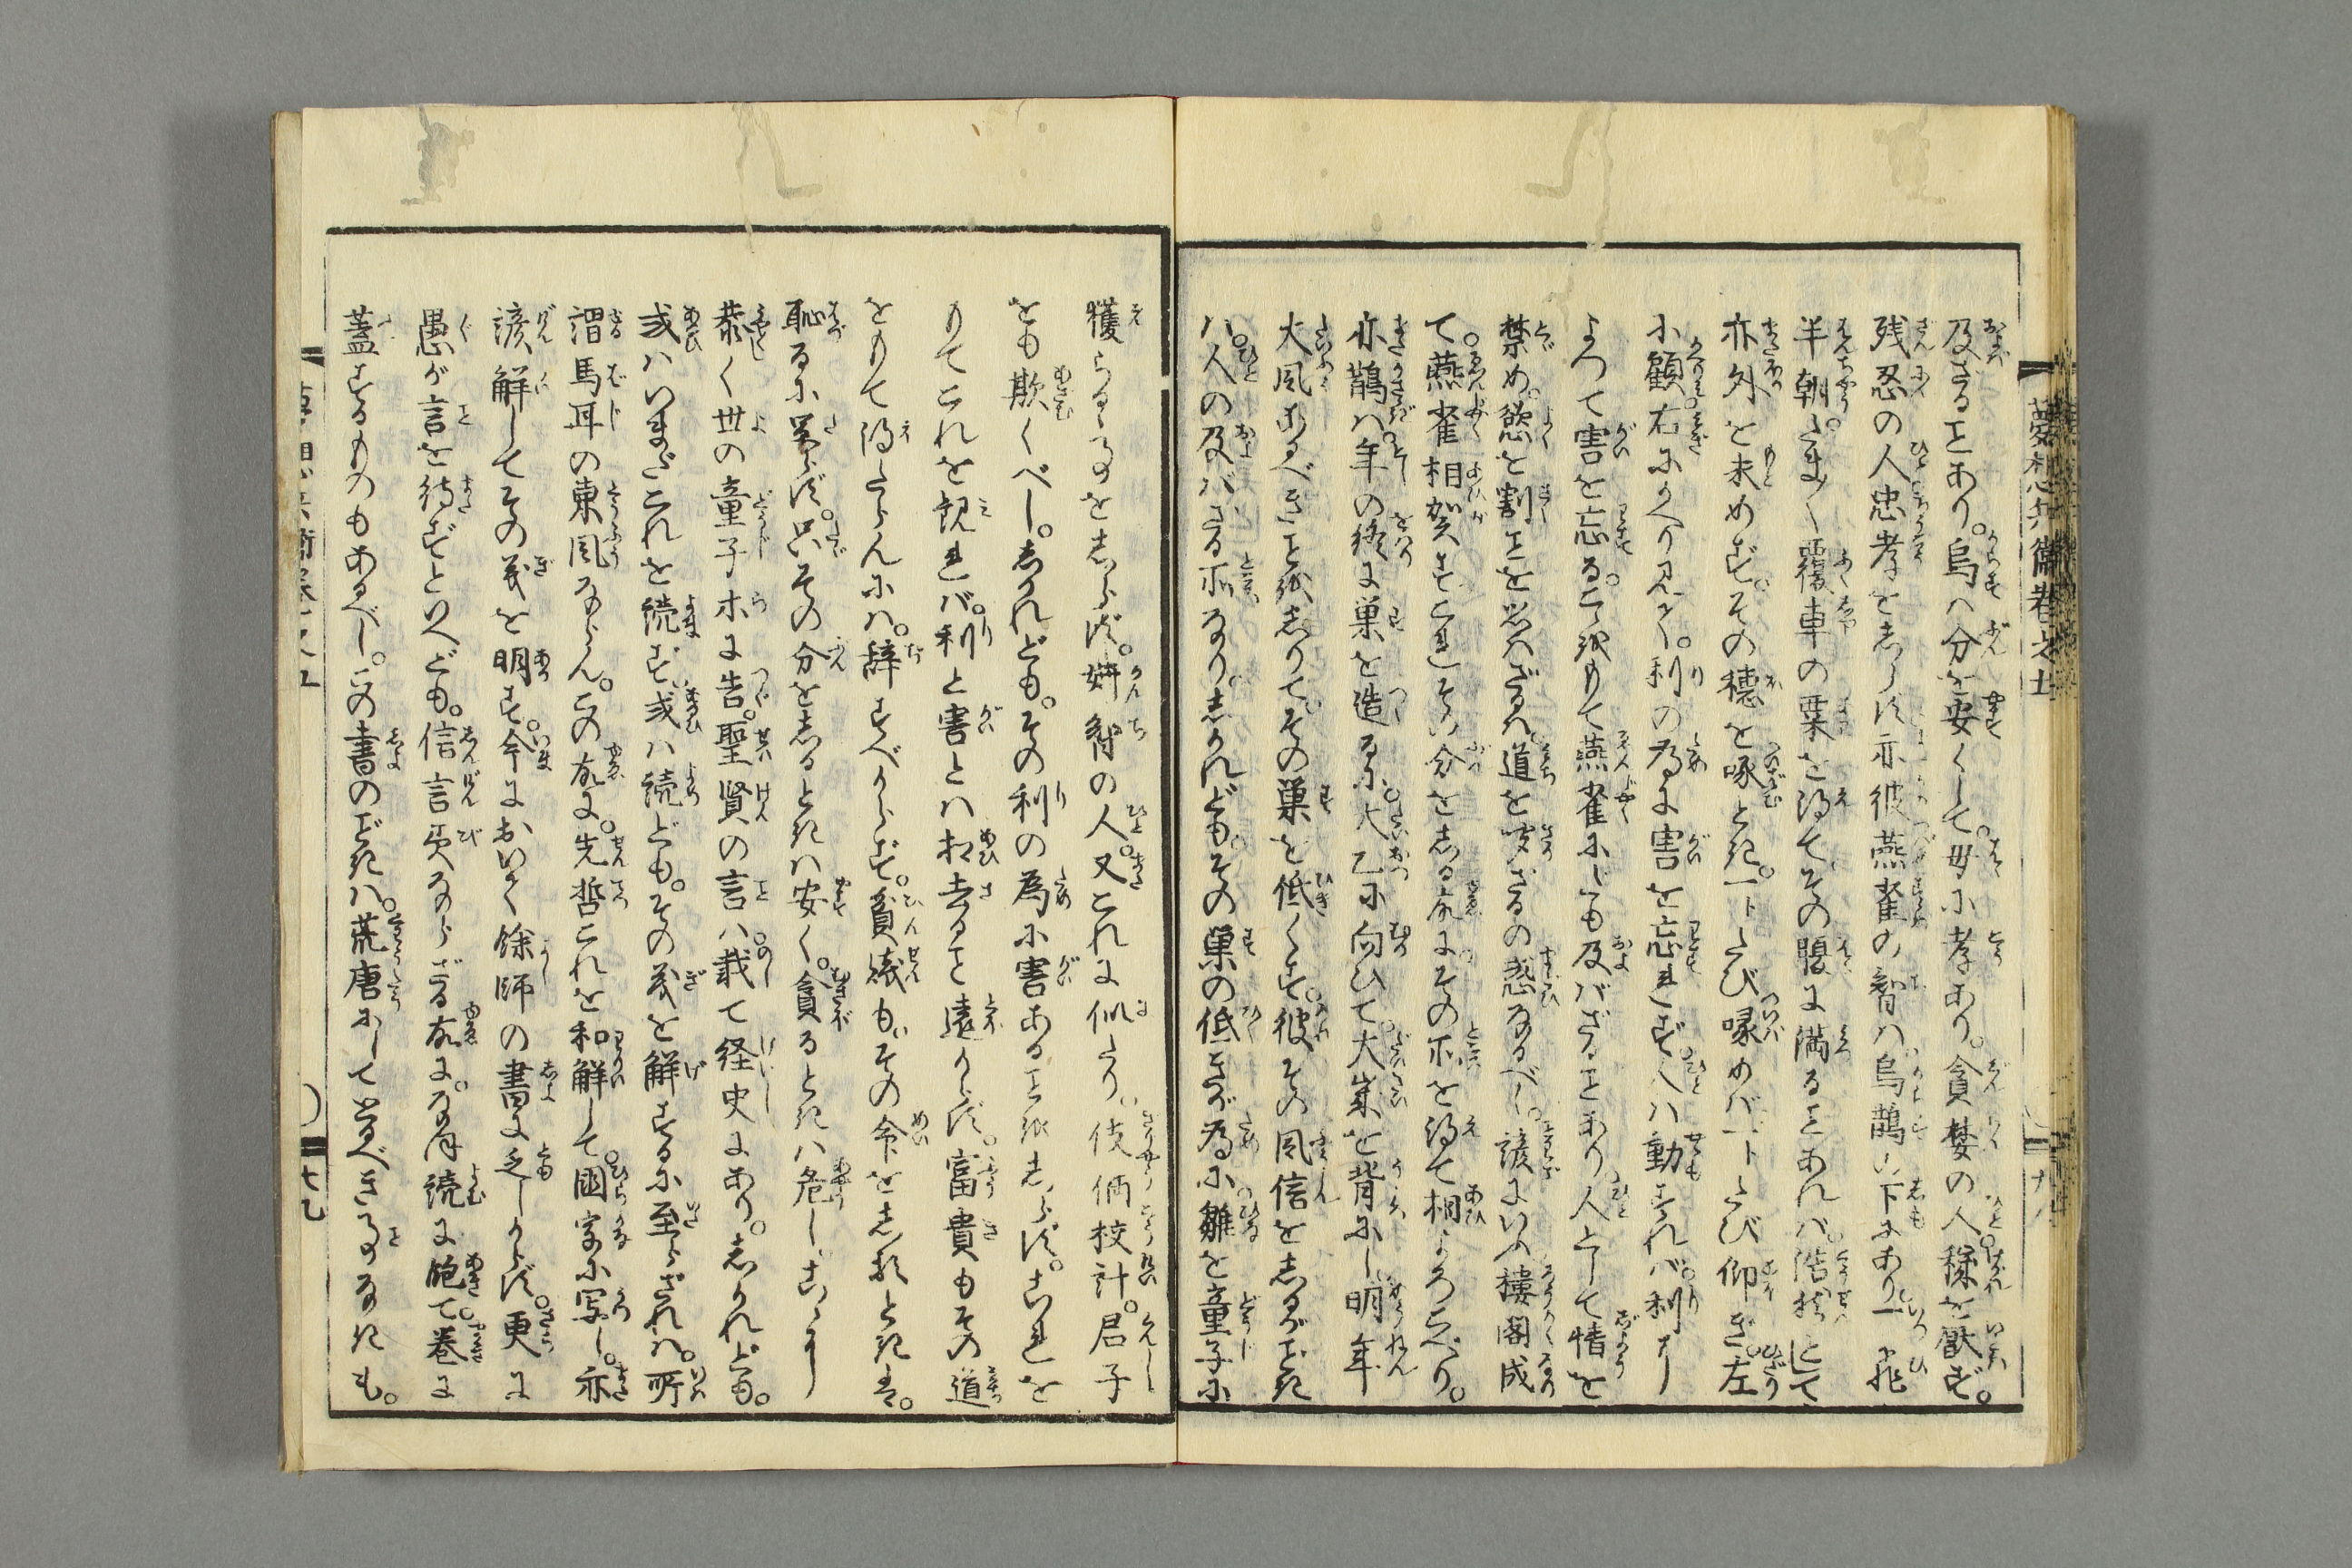 夢想兵衛巻之五
及ざることあり。烏ハ分を安くして。母に孝あり。貪婪の人。穢を厭ず。
残忍の人忠孝をしらず亦彼燕雀の智ハ烏鵲の下にあり。一飛
半朝。たま〳〵覆車の粟を得てその腹に満ることあれバ。浩然として
亦外を求めず。その穂を啄とき。一トたび啄めバ一トたび仰ぎ。左
に顧右にかへり見る。利の為に害を忘れず。人ハ動すれバ。利に
よつて害を忘る。こゝをもて燕雀にしも及バざることあり。人として情を
禁め。慾を割ことを思ハざるハ。道を聞ざるの惑なるべし。諺にいふ楼閣成
て。燕雀相賀すとこれその分をしる故にその所を得て相よろこべり。
亦鵲ハ。年の終に巣を造るに。大乙に向ひて。大歳を背にし明年
大風あるべきことをしりて。その巣を低くす。彼その風信をしるがごとき
ハ。人の及バざる所なり。しかれどもその巣の低きが為に雛を童子に
獲らるゝことをしらず。奸智の人。又これに似たり。伎倆校計。君子
をも欺くべし。しかれども。その利の為に害あることをしらず。これを
もてこれを観れバ。利と害とハ相去ること遠からず。富貴もその道
をもて得たらんにハ。辞すべからず。貧賎も。その命をしるときは。
恥るに足らず。只その分をしるときハ安く。貪るときハ危し。こゝに
恭く世の童子ホに告。聖賢の言ハ。載て経史にあり。しかれども。
或ハいまだこれを読ず。或ハ読ども。その義を解するに至らざれハ。所
謂馬耳の東風ならん。この故に。先哲これを和解して。国字に写し。亦
諺解してその義を明す。今において餘師の書に乏しからず。更に
愚が言を待ずといへども。信言美ならざる故に。なほ読に飽て。巻に
蓋するものもあるべし。この書のごときハ。荒唐にして当べきことなきも。